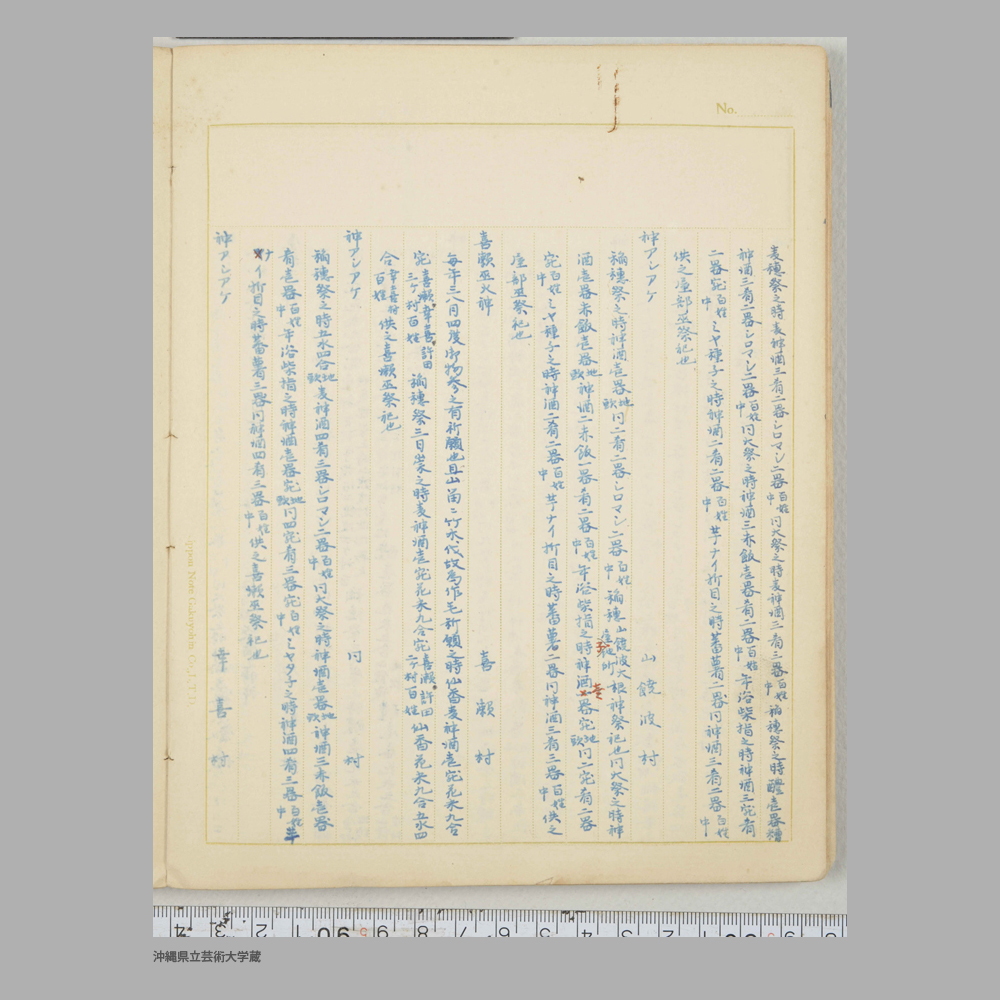 No.
麦穂祭之時麦神酒三肴二器シロマシ二器百姓中同大祭之時麦神酒三肴三器百姓中稲穂祭之時醴壱器
神酒三肴二器シロマシ二器百姓中同大祭之時神酒三赤飯壱器肴二器百姓中年浴柴指之時神酒三宛肴
二器宛百姓中ミヤ種子之時神酒二肴二器百姓中芋ナイ折目之時蕃薯二器同神酒三肴二器百姓中
供之屋部巫祭祀也
神アシアケ 山饒波村
稲穂祭之時神酒壱器地頭同二肴二器シロマシ二器百姓中稲穂山饒波大根神祭祀也同大祭之時神
酒壱器赤飯壱器地頭神酒二赤飯一器肴二器百姓中年浴柴指之時神酒壱器宛地頭同二宛肴二器
宛百姓中ミヤ種子之時神酒二肴二器百姓中芋ナイ折目之時蕃薯二器同神酒三肴三器百姓中供之
屋部巫祭祀也
喜瀬巫火神 喜瀬村
毎年三八月四度御物参之有祈願也且山留ニ竹木代故為作毛祈願之時仙香麦神酒壱宛花米九合
宛喜瀬幸喜許田三ケ村百姓稲穂祭三日崇之時麦神酒壱宛花米九合宛喜瀬許田二ケ村百姓仙香花米九合五水四
合幸喜村百姓供之喜瀬巫祭祀也
神アシアケ 同村
稲穂祭之時五水四合地頭麦神酒四肴三器シロマシ二器百姓中同大祭之時神酒壱器地頭神酒三赤飯壱器
肴壱器百姓中年浴柴指之時神酒壱器宛地頭同四宛肴三器宛百姓中ミヤタ子之時神酒四肴三器百姓中芋
ナイ折目之時蕃薯三器同神酒四肴三器百姓中供之喜瀬巫祭祀也
神アシアケ 幸喜村
沖縄県立芸術大学蔵